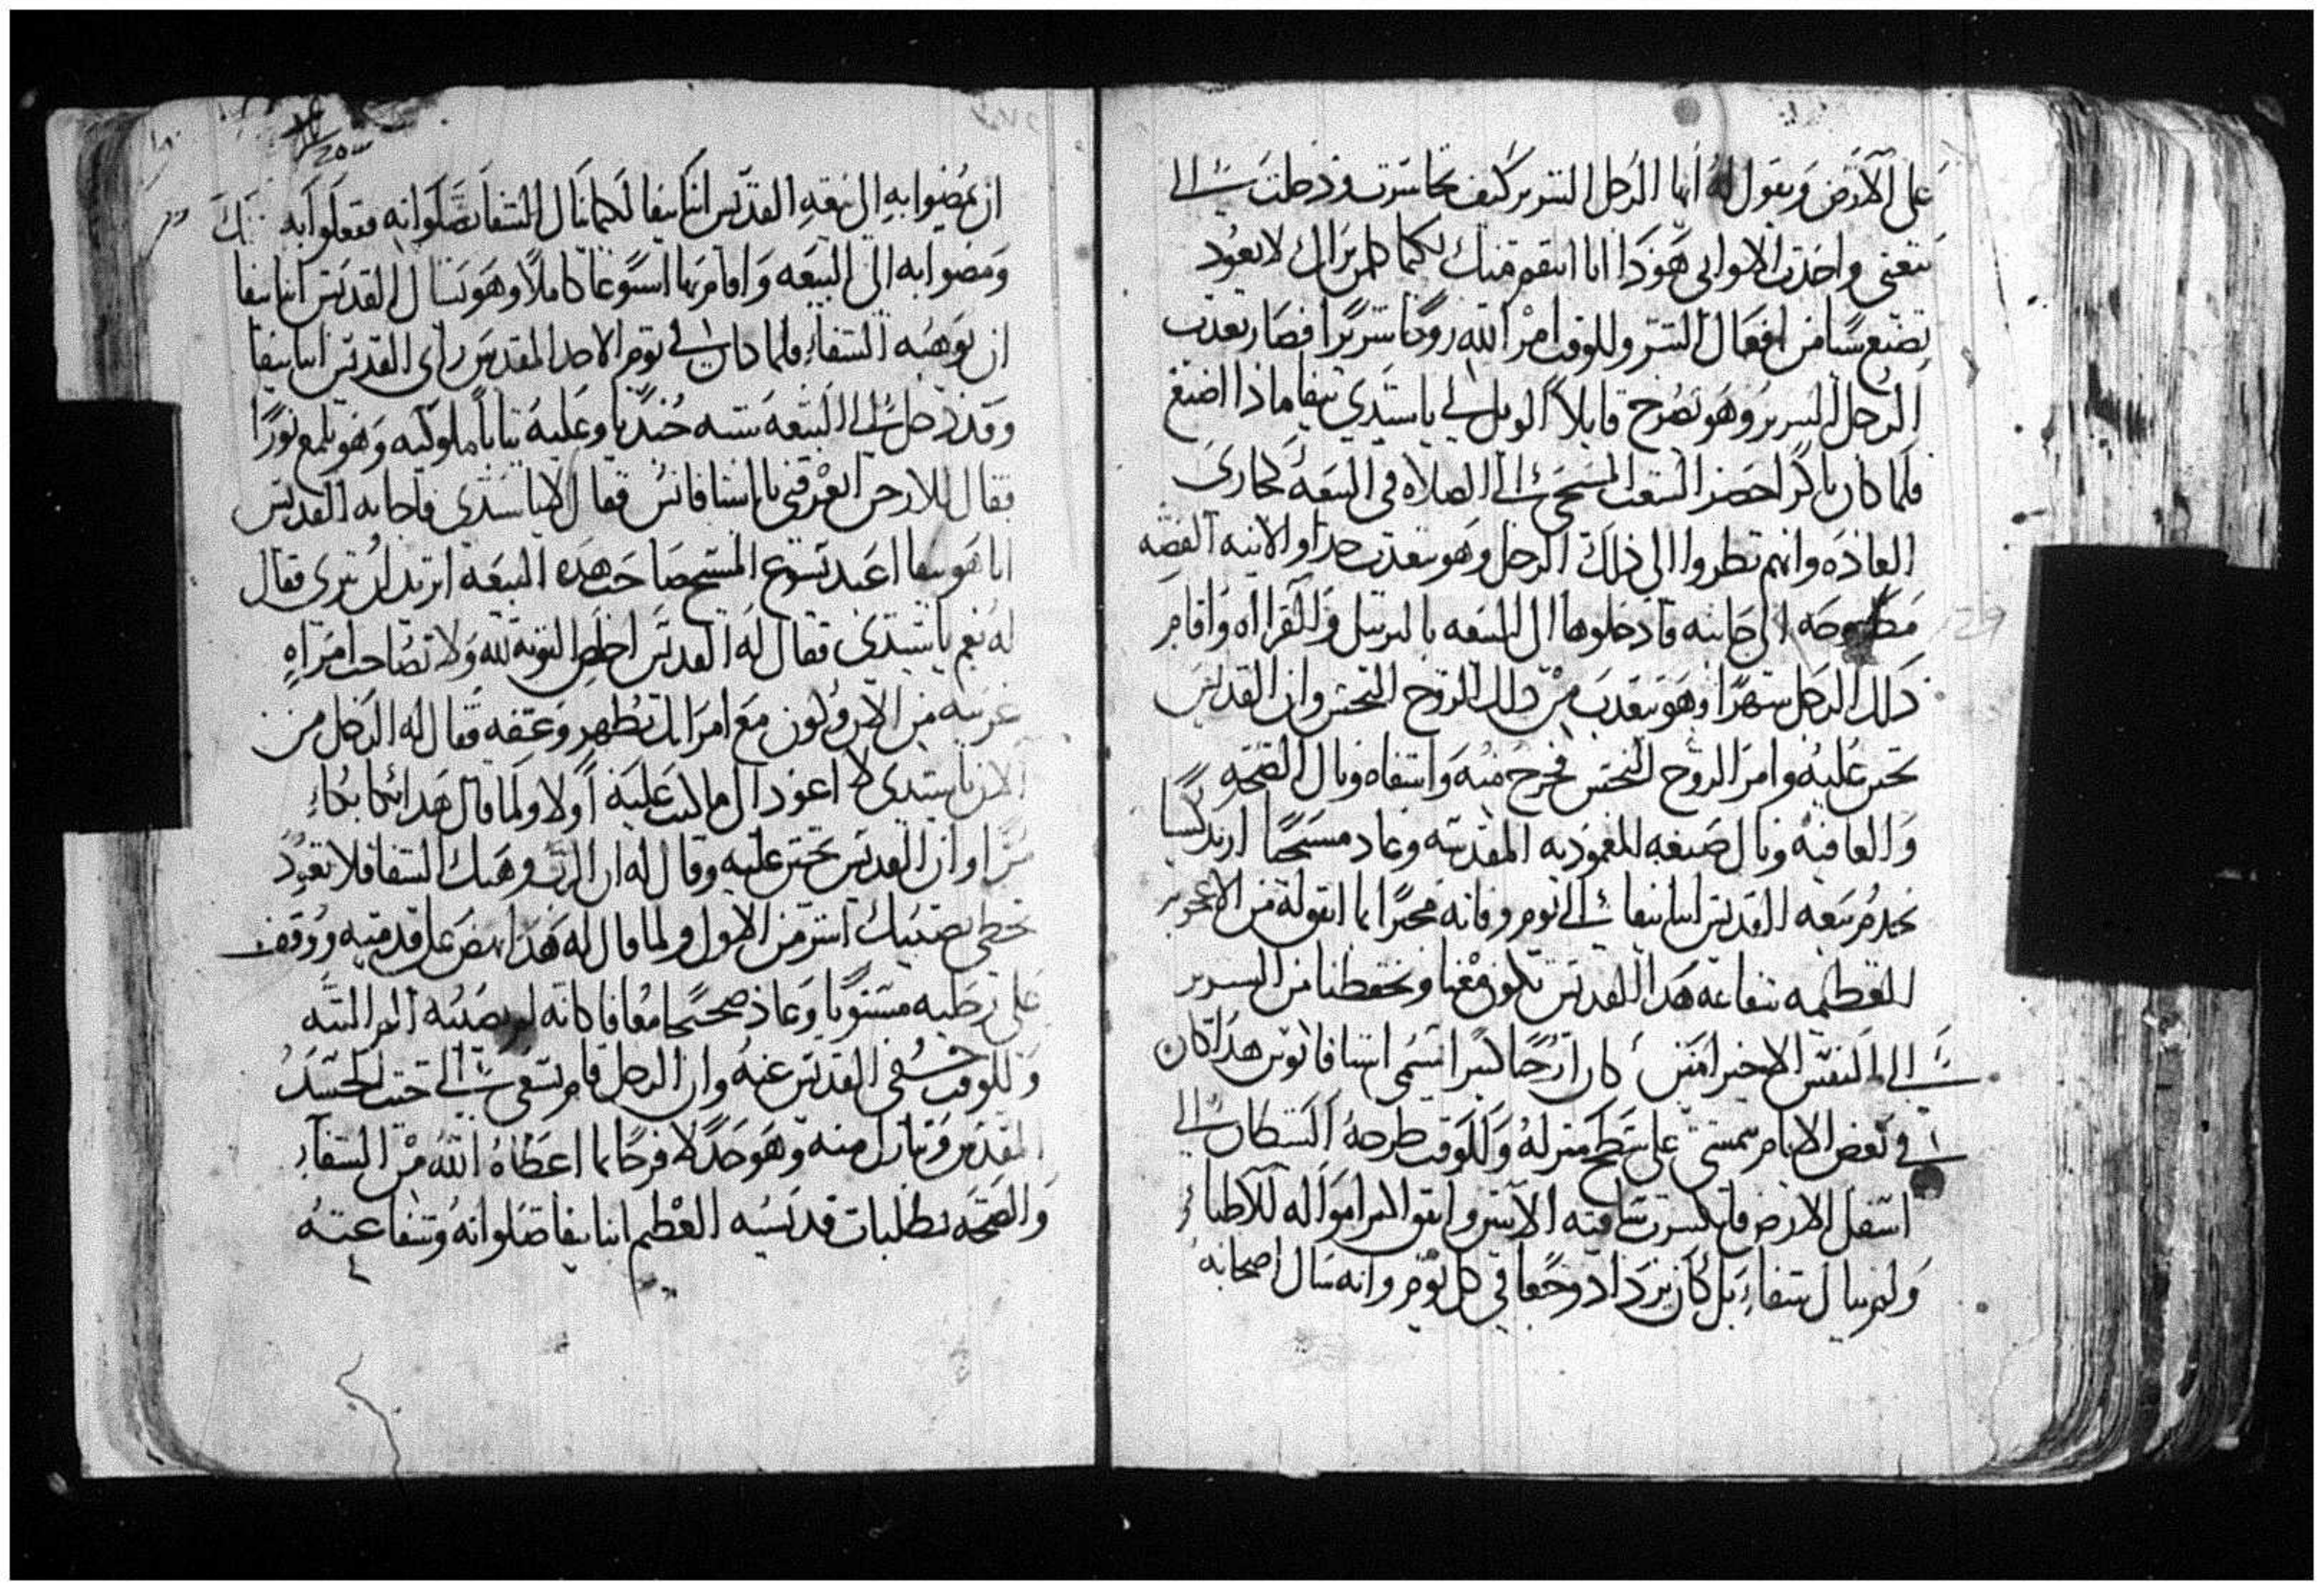 على الأرض ويقول له أيها الرجل الشرير كيف تجاسرت ودخلت إلى
بيعتي واخذت الاواني هوذا انا انتقم منك لكيما كلمن يراك لا يعود
يصنع شيا من افعال الشر وللوقت امر الله روحا شريرا فصار يعذب
الرجل الشرير وهو يصرخ قايلا الويل لي يا سيدي بيفا ماذا اصنع
فلما كان باكر احضر الشعب المسيحي الى الصلاه في البيعه كجاري
العاده وانهم نظروا الى ذلك الرجل وهو يتعذب جدا والانيه الفضه
مطروحه الى جانبه فادخلوها الى البيعه بالترتيل والقراه واقام
ذلك الرجل شهرا وهو يتعذب من ذلك الروح النجس وان القديس
تحنن عليه وامر الروح النجس فخرج منه واشفاه ونال الصحه
والعافيه ونال صبغه المعموديه المقدسه وعاد مسيحيا ارتدكسيا
يخدم بيعه القديس انبا بيفا الى يوم وفاته مخبرا بما
العظيمه شفاعة هذا القديس تكون معنا وتحفظنا من الشرير
الى النفس الاخير امين كان ارخنا كبيرا يسمى اشنافانوس هذا كان
في بعض الايام يمشي على سطح منزله وللوقت طرحه الشيطان الى
اسفل الارض فانكسرت ساقيه الاتنين وانفق اكثر امواله للاطباء
ولم ينال شفاء بل كان يزداد وجعا في كل يوم وانه سال اصحابه
ان يمضوا به الى بيعه القديس انبا بيفا لكيما ينال الشفا بصلواته ففعلوا به
ومضوا به الى البيعه واقام بها اسبوعا كاملا وهو يسال القديس انبا بيفا
ان يوهبه الشفاء فلما كان في يوم الاحد المقدس راى القديس انبا بيفا
وقد دخل الى البيعه شبه جنديا وعليه ثيابا ملوكيه وهو يلمع نورا
فقال للارخن اتعرفني يا اشنافانس فقال لا يا سيدي فاجابه القديس
انا هو بيفا اعبد يسوع المسيح صاحب هذه البيعه اتريد ان تبرى فقال
له نعم يا سيدي فقال له القديس اخلص التوبه لله ولا تصاحب امراه
غريبه من الان وكون مع امراتك بطهر وعفه فقال له الرجل من
الان يا سيدي لا اعود الى ما كنت عليه اولا ولما قال هذا بكا بكاء
مرا وان القديس تحنن عليه وقال له ان الرب وهبك الشفا فلا تعود
تخطي يصيبك اشر من الاول ولما قال له هذا نهض على قدميه ووقف
على رجليه مستويا وعاد صحيحا معافا كانه لم يصيبه الم البته
وللوقت خفي القديس عنه وان الرجل قام يسعى الى تحت الجسد
المقدس وتبارك منه وهو جدلا فرحا بما اعطاه الله من الشفاء
والصحه بطلبات قديسه العظيم انبا بيفا صلواته وشفاعته